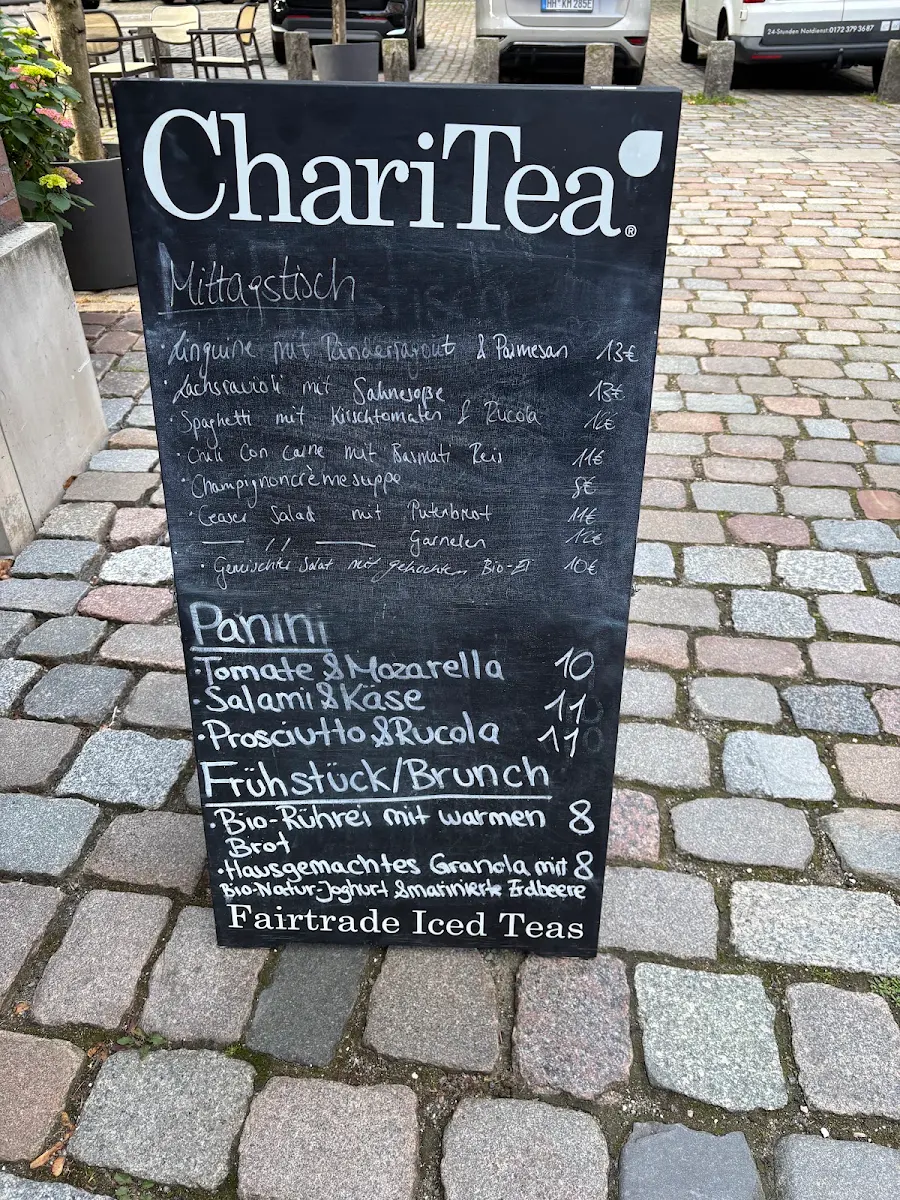 HH KM 285E
24-Stunden Notdienst: 0172 379 3687
ChariTea®
Mittagstisch
· Linguine mit Rinderragout & Parmesan 13€
· Lachsravioli mit Sahnesoße 13€
· Spaghetti mit Kirschtomaten & Rucola 12€
· Chili Con carne mit Basmati Reis 11€
· Champignoncrèmesuppe 8€
· Ceaser Salad mit Putenbrust 11€
— 11 — Garnelen 12€
· Gemischter Salat mit gekochtem Bio-EI 10€
Panini
· Tomate & Mozarella 10
· Salami & Käse 11
· Prosciutto & Rucola 11
Frühstück/Brunch
· Bio-Rührei mit warmen 8
Brot
· Hausgemachtes Granola mit 8
Bio-Natur-Joghurt & marinierte Erdbeere
Fairtrade Iced Teas